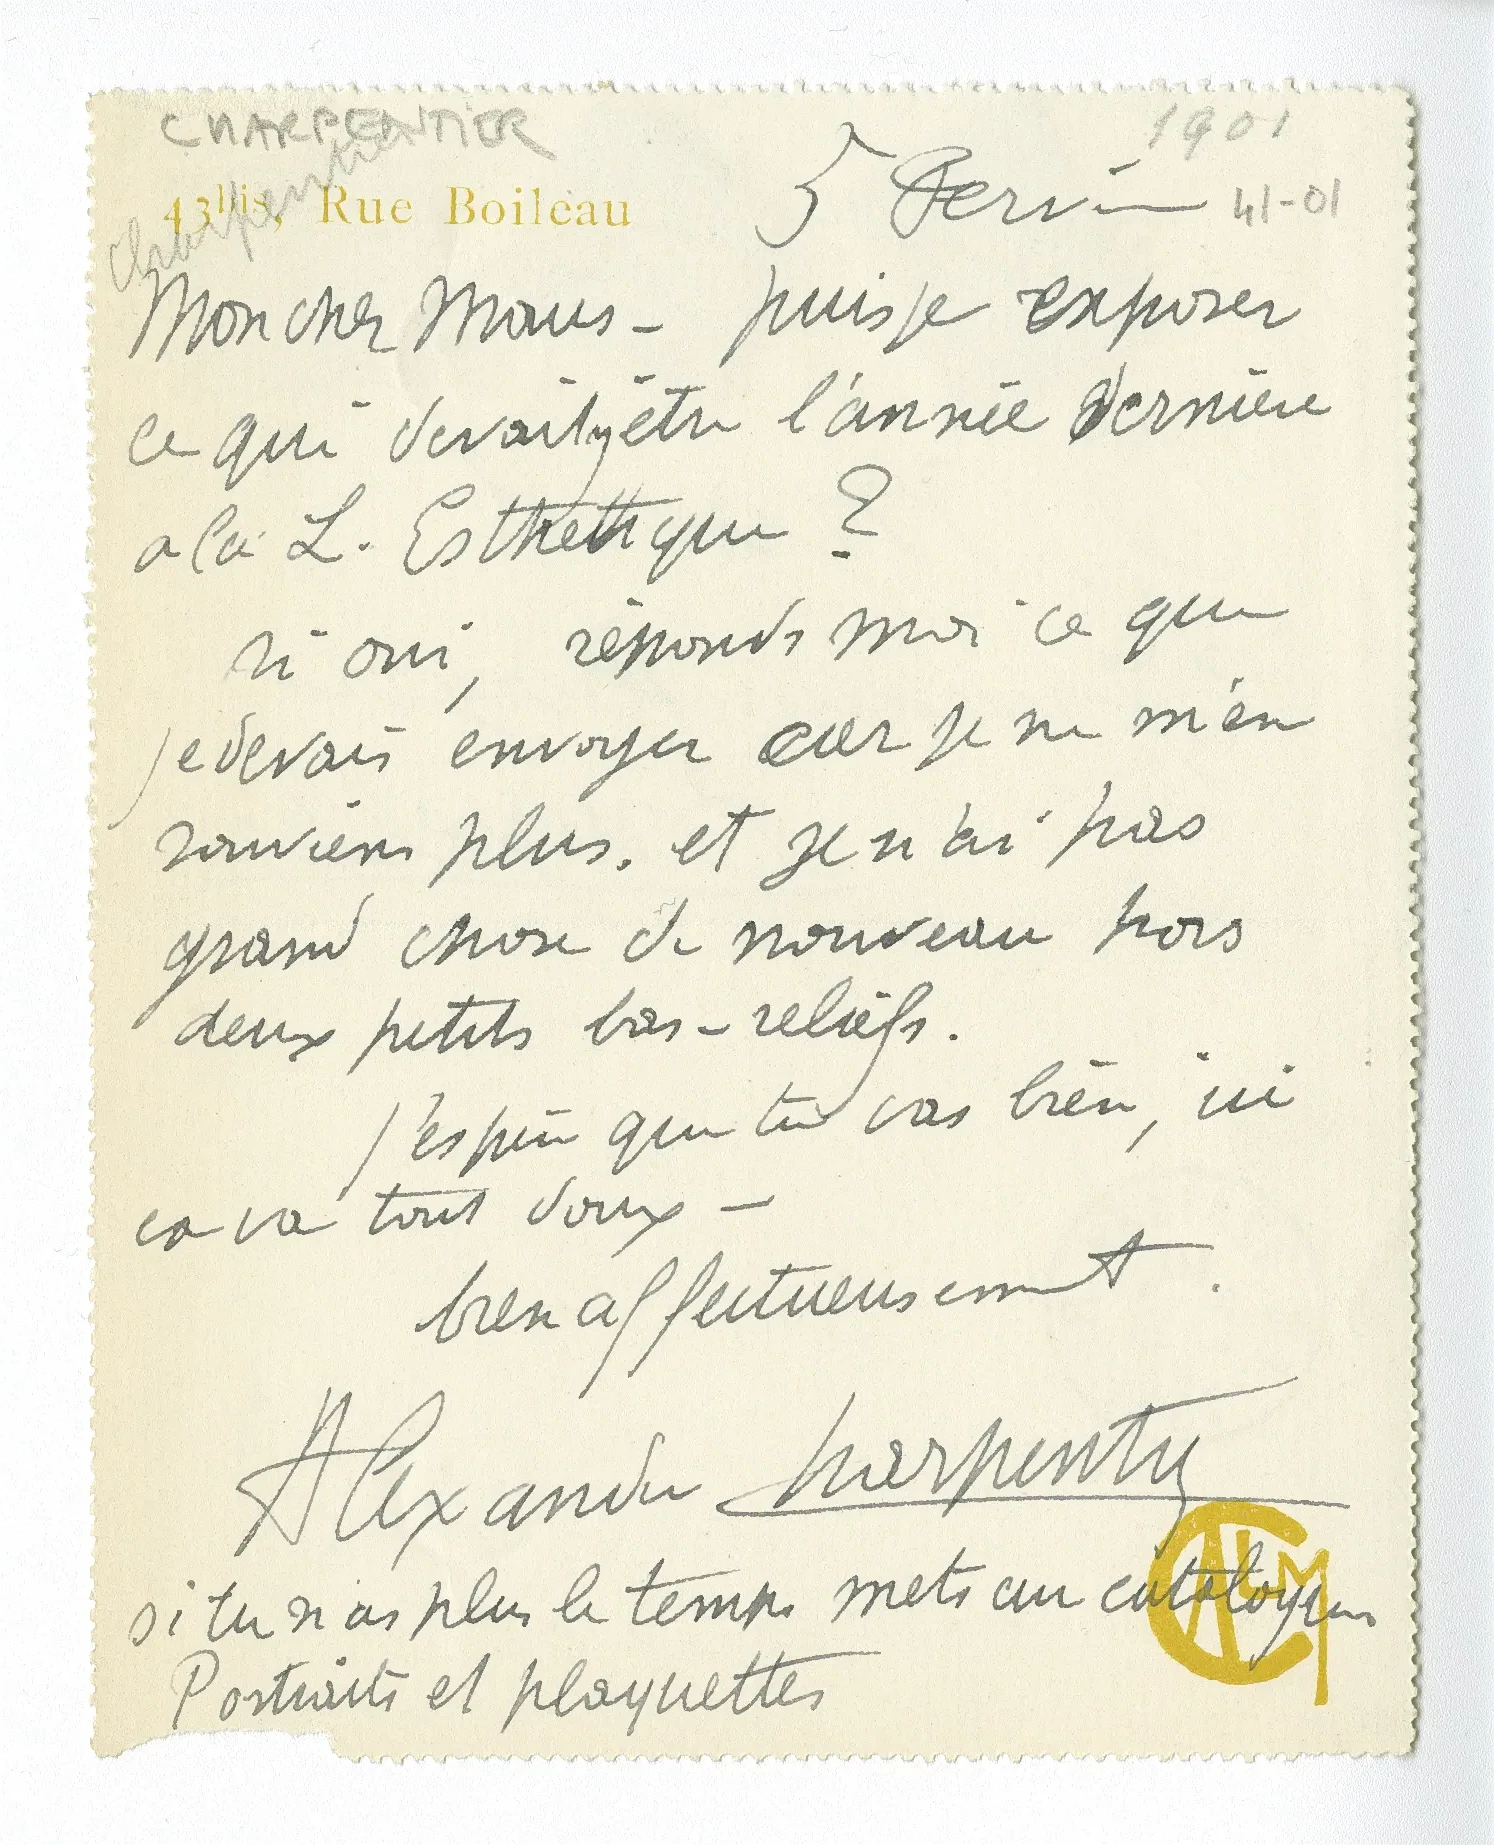 CHARPENTIER
1901
Charpentier
43bis, Rue Boileau
5 Fervier
41-01
Mon cher Maus - puis je exposer
ce qui devait y être l'année dernière
a la L. Esthetique ?
si oui, réponds moi ce que
je devais envoyer car je ne m'en
souviens plus. et je n'ai pas
grand chose de nouveau hors
deux petits bas-reliefs.
j'espère que tu vas bien, ici
ca va tout doux -
bien affectueusement.
Alexandre Charpentier
si tu n'as plus le temps mets au catalogue
Portraits et plaquettes